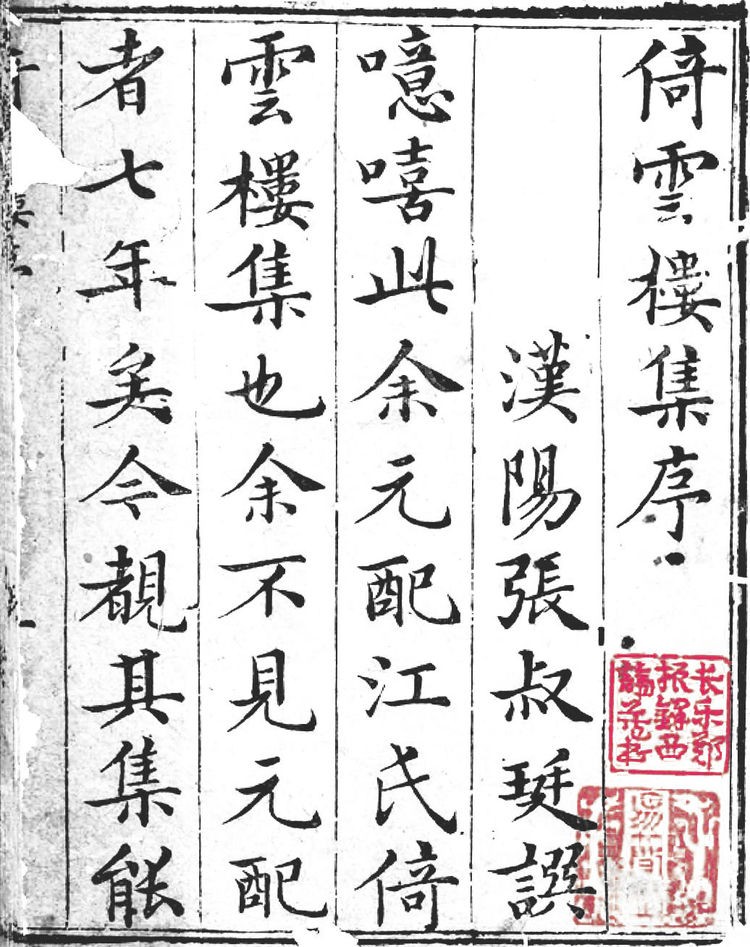 倚雲樓集序
漢陽張叔珽譔
噫嘻此余元配江氏倚
雲樓集也余不見元配
者七年矣今覩其集能
长乐郑
振鐸西
諦藏书